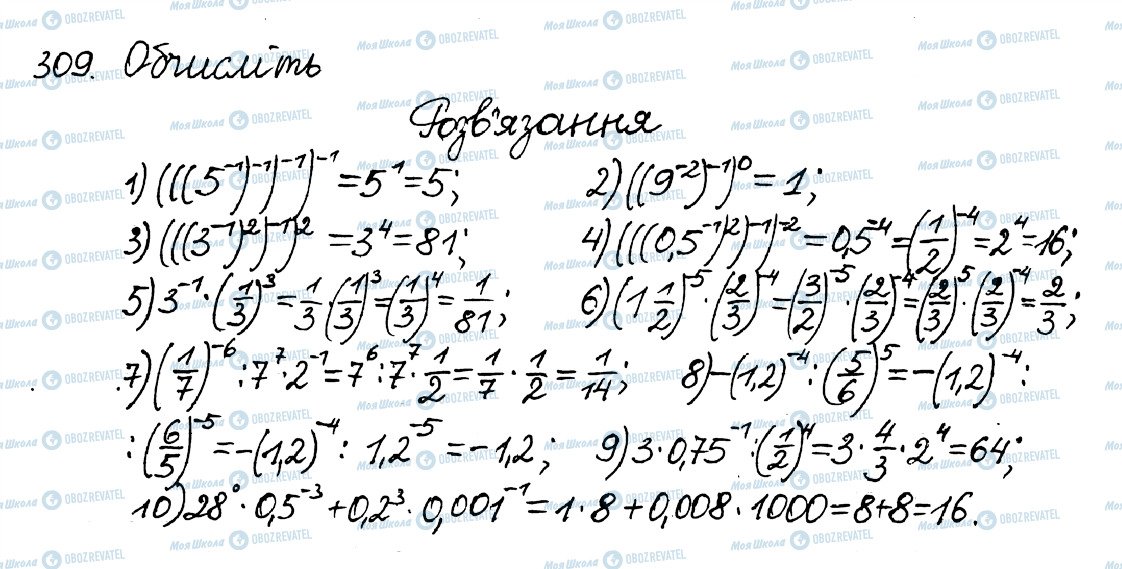 309. Обчисліть
Розв'язання
1) ((((5⁻¹)⁻¹)⁻¹)⁻¹ = 5⁻¹ = 5; 2) ((9⁻²)⁻¹)⁰ = 1;
3) (((3⁻¹)²)⁻¹)² = 3⁴ = 81; 4) ((((0,5⁻¹)²)⁻¹)⁻² = 0,5⁻⁴ = (1/2)⁻⁴ = 2⁴ = 16;
5) 3⁻¹ · (1/3)³ = 1/3 · (1/3)³ = (1/3)⁴ = 1/81; 6) (1 1/2)⁻⁵ · (2/3)⁻⁴ = (3/2)⁻⁵ · (2/3)⁻⁴ = (2/3)⁵ · (2/3)⁻⁴ = 2/3;
7) (1/7)⁻⁶ : 7⁷ · 2⁻¹ = 7⁶ : 7⁷ · 1/2 = 1/7 · 1/2 = 1/14; 8) -(1,2)⁻⁴ : (5/6)⁵ = -(1,2)⁻⁴ :
: (6/5)⁻⁵ = -(1,2)⁻⁴ : 1,2⁻⁵ = -1,2; 9) 3 · 0,75⁻¹ : (1/2)⁴ = 3 · 4/3 · 2⁴ = 64;
10) 28⁰ · 0,5⁻³ + 0,2³ · 0,001⁻¹ = 1 · 8 + 0,008 · 1000 = 8 + 8 = 16.
Моя Школа OBOZREVATEL